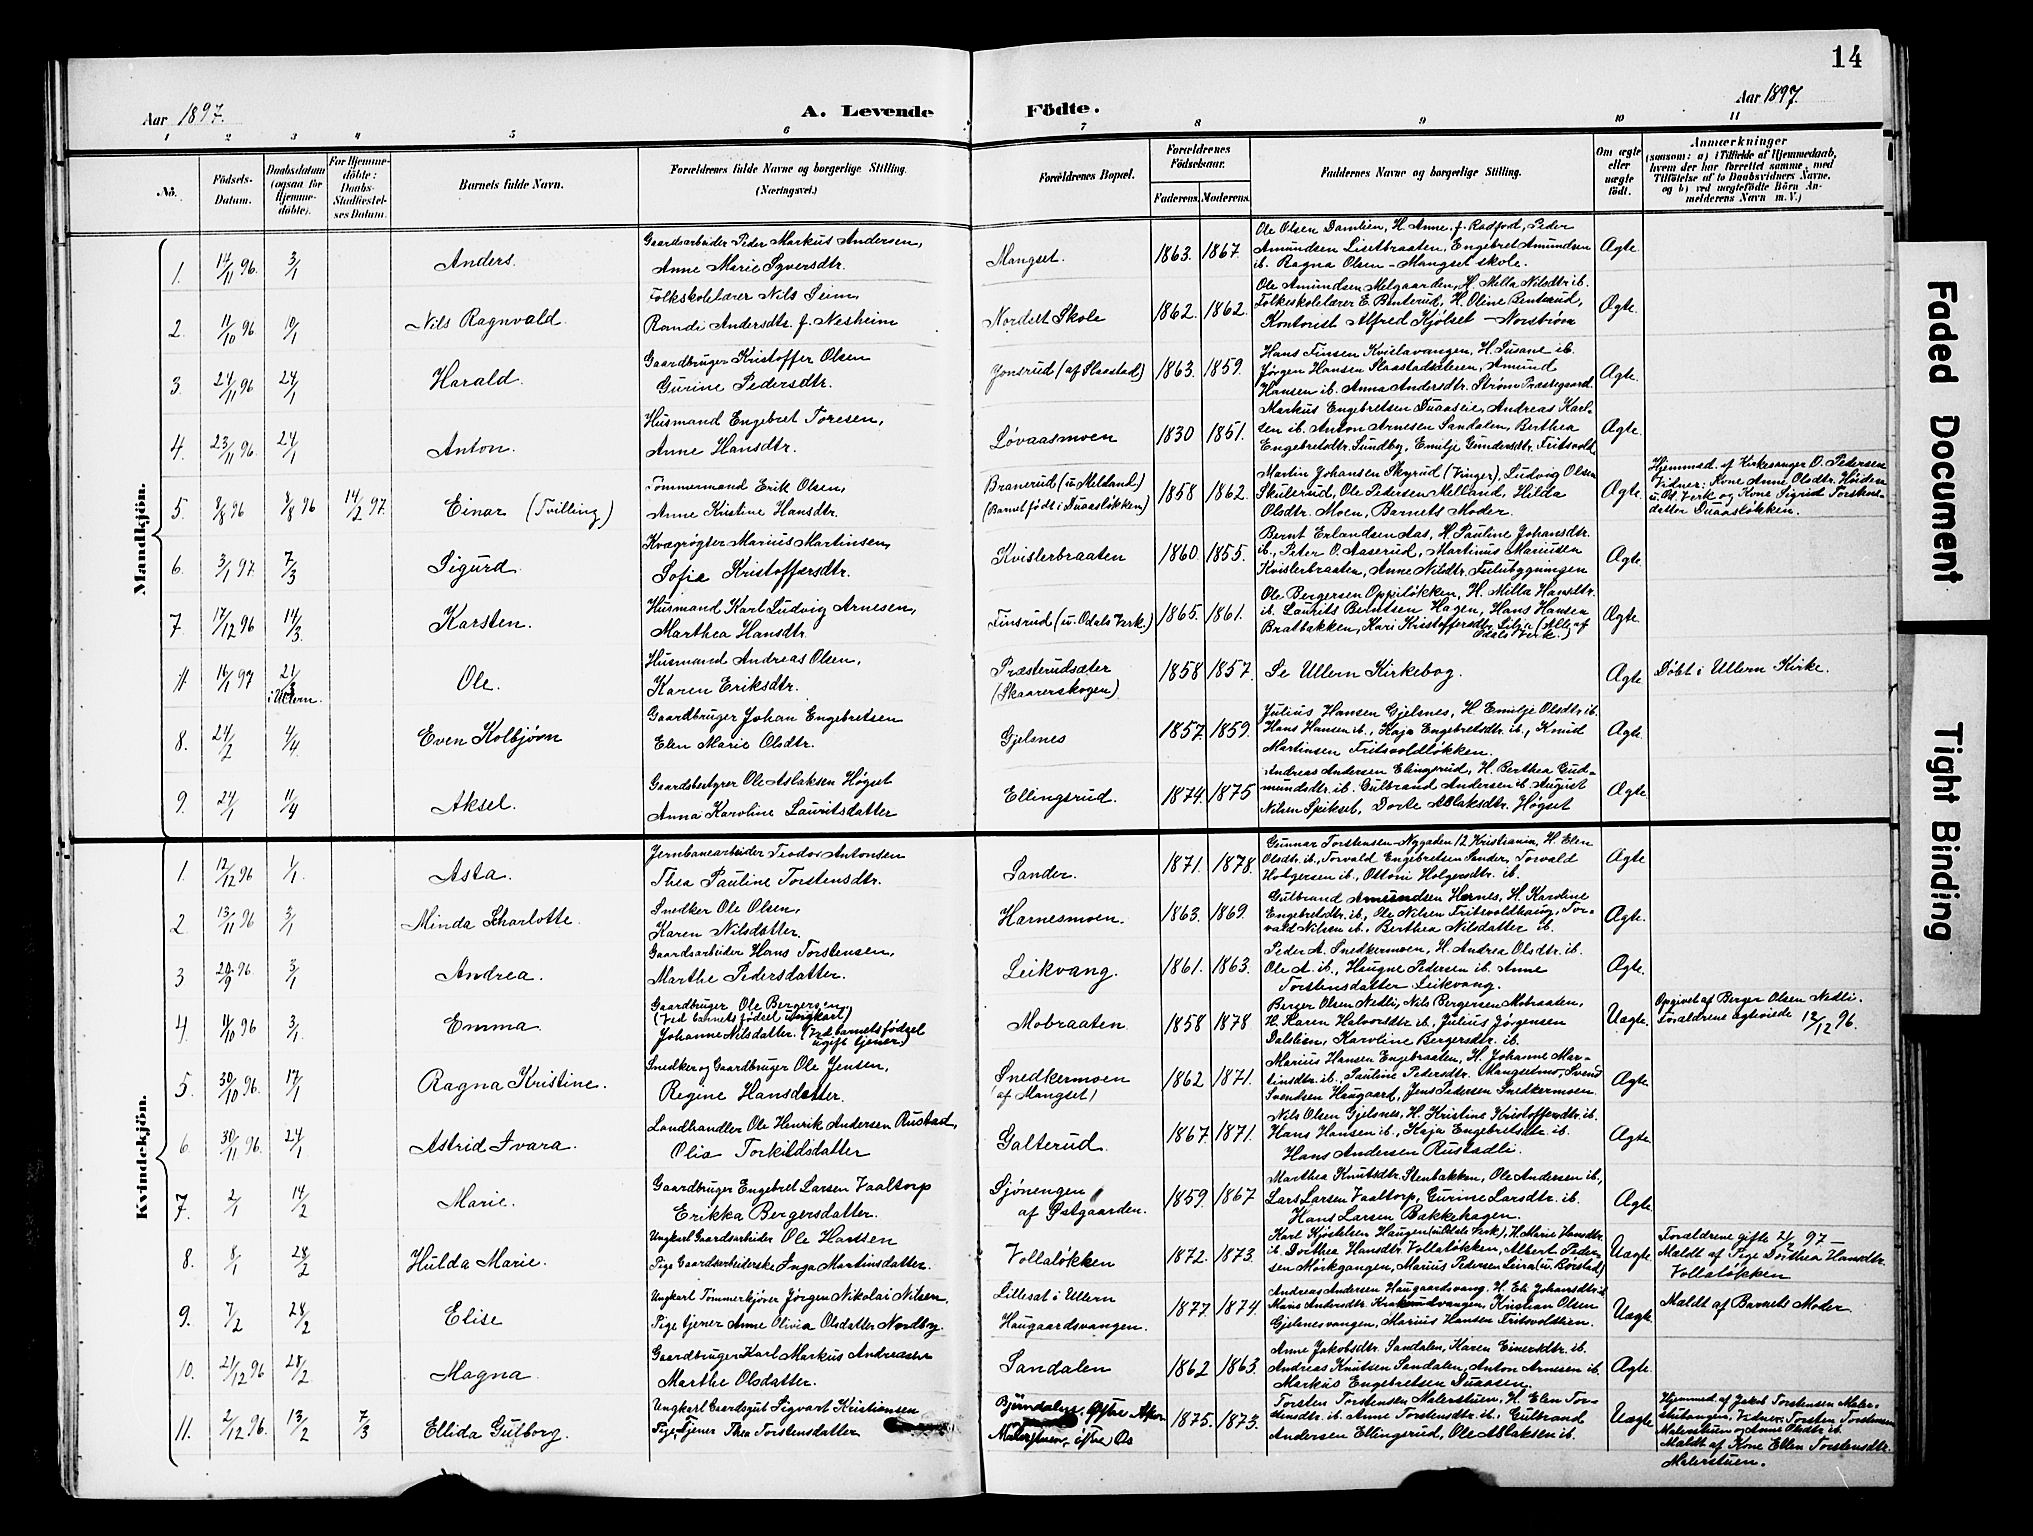 14
Aar 1897.
A. Levende Födte.
Aar 1897.
1 2 3 4 5 6 7 8 9 10 11
No.
Födsels-Datum.
Daabsdatum (ogsaa for Hjemme-döbte).
For Hjemme-döbte: Daabs-Stadfæstel-ses Datum.
Barnets fulde Navn.
Forældrenes fulde Navne og borgerlige Stilling. (Næringsvei.)
Forældrenes Bopæl.
Forældrenes Födselsaar.
Faderens. Moderens.
Faddernes Navne og borgerlige Stilling.
Om ægte eller uægte födt.
Anmærkninger
(saasom: a) i Tilfælde af Hjemmedaab,
hvem der har forrettet samme, med
Tilföielse af to Daabsvidners Navne,
og b) ved uægtefödte Börn An-
melderens Navn m. V.)
Mandkjön.
1. 14/11 96. 3/1 Anders.
Gaardsarbeider Peder Markus Andersen,
Anne Marie Syversdtr.
Mangset. 1863. 1867.
Ole Olsen Damlien, H. Anne f. Rodfod, Peder
Amundsen Lisetbraaten, Engebret Amundsen
ib. Ragna Olsen - Mangset skole.
Ægte.
2. 11/10 96 10/1 Nils Ragnvald.
Folkskolelærer Nils Seim,
Randi Andersdtr. f. Nesheim
Nordset Skole 1862. 1862.
Ole Amundsen Melgaarden, H. Milla Nilsdtr ib.
Folkeskolelærer E. Benterud, H. Oline Benterud,
Kontorist Alfred Kjølset - Norstrøm
Ægte.
3 24/11 96 24/1 Harald.
Gaardbruger Kristoffer Olsen
Gurine Pedersdtr.
Jonsrud (af Slaastad) 1863. 1859.
Hans Finsen Kvislavangen, H. Susane ib.
Jørgen Hansen Slaastadeiesen, Amund
Hansen ib. Anna Andersdtr. Strøm Præstegaard.
Ægte.
4. 23/11 96. 24/1 Anton.
Husmand Engebret Toresen,
Anne Hansdtr.
Løvaasmoen 1830 1851.
Markus Engebretsen Duaaseie, Andreas Karl-
sen ib. Anton Arnesen Sandalen, Berthea
Engebretsdtr. Sundby, Emilje Gundersdtr. Fritsvold
Ægte.
5. 8/8 96 8/8 96 14/2 97. Einar (Tvilling)
Tømmermand Erik Olsen,
Anne Kristine Hansdtr.
Branerud (u. Melland.)
(Barnet født i Duaasløkken) 1858 1862.
Martin Johansen Skyrud (Vinger), Ludvig Olsen
Skulerud, Ole Pedersen Melland, Hilda
Olsdtr. Moen, Barnets Moder.
Ægte.
Hjemmed. af Kirkesanger O. Pedersen
Vidner: Kone Anne Olsdtr. Heiden
u. Od. Verk og Kone Sigrid Torstens-
datter Duaasløkken.
6. 3/1 97. 7/3 Sigurd.
Kvægrøgter Marius Martinsen,
Sofie Kristoffersdtr.
Kvislerbraaten 1860 1855.
Bernt Erlandsen Aas, H. Pauline Johansdtr.
ib., Peter O. Aaserud, Martinus Mariusen
Kvislerbraaten, Anne Nilsdtr. Fulubygningen
Ægte.
7. 17/12 96 14/3. Karsten.
Husmand Karl Ludvig Arnesen,
Marthea Hansdtr.
Finsrud (u. Odals Verk.) 1865. 1861.
Ole Bergersen Oppiløkken, H. Milla Hansdtr.
ib. Laurits Berntsen Hagen, Hans Hansen
Bratbakken, Kari Kristoffersdtr. Lilja (Alle af
Odals Verk.)
Ægte.
11 16/1 97 21/3 i Ullern. Ole.
Husmand Andreas Olsen,
Karen Eriksdtr.
Præsterudsæter
(Skaarerskogen) 1858 1857.
Se Ullern Kirkebog.
Ægte
Døbt i Ullern Kirke.
8. 24/2 4/4. Even Kolbjørn
Gaardbruger Johan Engebretsen
Elen Marie Olsdtr.
Gjelsnes 1857. 1859.
Julius Hansen Gjelsnes, H. Emilje Olsdtr. ib.
Hans Hansen ib., Kaja Engebretsdtr. ib., Knud
Martinsen Fritsvoldløkken.
Ægte.
9. 24/1 11/4 Aksel.
Gaardsbestyrer Ole Aslaksen Høgset
Anna Karoline Lauritsdatter
Ellingsrud. 1874. 1875
Andreas Andersen Elingsrud, H. Berthea Gud-
mundsdtr. ib. Gulbrand Andersen ib. August
Nilsen Spikset, Dorte Aslaksdtr. Høgset
Ægte.
Kvindekjön.
1. 12/12 96 1/1. Asta.
Jernbanearbeider Teodor Antonsen
Thea Pauline Torstensdtr.
Sander. 1871. 1878.
Gunnar Torstensen - Nygaden 12 Kristiania, H. Elen
Olsdtr. ib., Torvald Engebretsen Sander, Torvald
Holgersen ib., Ottoni Holgersdtr. ib.
Ægte
2 13/11 96 3/1 Minda Scharlotte.
Snedker Ole Olsen,
Karen Nilsdatter.
Harnesmoen. 1863. 1869.
Gulbrand Amundsen Hernes, H. Karoline
Engebretsdtr. ib., Ole Nilsen Fritsvoldhaug, Tor-
vald Nilsen ib., Berthea Nilsdatter ib.
Ægte.
3 20/9 96. 3/1 Andrea.
Gaardsarbeider Hans Torstensen,
Marthe Pedersdatter.
Leikvang. 1861. 1863.
Peder A. Snedkermoen, H. Andrea Olsdtr. ib.
Ole A. ib., Haugne Pedersen ib. Anne
Torstensdatter Leikvang.
Ægte
4. 4/10 96 3/1. Emma
Gaardbruger Ole Bergersen
(Ved barnets fødsel ungkarl)
Johanne Nilsdatter. (Ved barnets fødsel
ugift tjener)
Mobraaten 1858 1878
Berger Olsen Nedli, Nils Bergersen Mobraaten,
H. Karen Halvorsdtr. ib., Julius Jørgensen
Dalslien, Karoline Bergersdtr. ib.
Uægte.
Opgivet af Berger Olsen Nedli.
Forældrene ægteviede 12/12 96.
5. 30/10 96. 17/1 Ragna Kristine.
Snedker og Gaardbruger Ole Jensen,
Regine Hansdatter.
Snedkermoen
(af Mangset) 1862 1871.
Marius Hansen Engebraaten, H. Johanne Mar-
tinsdtr. ib., Pauline Pedersdtr. Mangsetmo, Svend
Svendsen Haugaard, Jens Pedersen Snedkermoen.
Ægte.
6 30/11 96. 24/1 Astrid Ivara.
Landhandler Ole Henrik Andersen Rustad,
Olia Torkildsdatter
Galterud. 1867. 1871.
Nils Olsen Gjelsnes, H. Kristine Kristoffersdtr. ib.
Hans Hansen ib., Kaja Engebretsdtr. ib.
Hans Andersen Rustadli.
Ægte
7. 2/1 14/2 Marie.
Gaardbruger Engebret Larsen Vaaltorp
Erikka Bergersdatter.
Sjønengen
af Østgaarden. 1859. 1867
Marthea Knutsdtr. Stenbakken, Ole Andersen ib.,
Lars Larsen Vaaltorp, Gurine Larsdtr. ib.
Hans Larsen Bakkehagen.
Ægte.
8. 8/1 28/2 Hulda Marie.
Ungkarl Gaardsarbeider Ole Hansen
Pige Gaardsarbeiderske Inga Martinsdatter.
Volløkken 1872. 1873.
Karl Kjølstsen Haugen (u. Odals Verk), H. Marie Hansdtr.
ib. Dorthea Hansdtr. Volløkken, Albert Peder-
sen Mørkgangen, Marius Pedersen Leira (u. Rørstad)
Uægte.
Forældrene gifte 21/2 97 -
Meldt af Pige Dorthea Hansdtr.
Volløkken
9. 7/2 28/2 Elise
Ungkarl Tømmerkjører Jørgen Nikolai Nilsen.
Pige tjener Anne Olivia Olsdatter Nordby.
Lilleset i Ullern
Haugaardsvangen. 1877. 1874.
Andreas Andersen Haugaardsvang. H. Eli Johansdtr. ib
Maris Andersdtr. Krakeundvangen, Kristian Olsen
Gjelsnesvangen, Marius Hansen Fritsvoldlien.
Uægte
Meldt af Barnets Moder
10. 21/12 96 28/2 Magna
Gaardbruger Karl Markus Andreasen
Marthe Olsdatter.
Sandalen 1862 1863.
Anne Jakobsdtr. Sandalen, Karen Einersdtr. ib.
Andreas Knutsen Sandalen, Anton Arnesen ib.
Markus Engebretsen Duaasen.
Ægte.
11. 2/12 96. 13/2 7/3 Ellida Gulborg.
Ungkarl Gaardsgut Sigvart Kristiansen
Pige Tjener Thea Torstensdatter
Bjørndalen, Østre
Malerstuen, østre Os 1875. 1873.
Torsten Torstensen Malerstuen, H. Elen Tor-
stensdtr. ib. Anne Torstensdtr. ib., Gulbrand
Andersen Ellingsrud, Ole Aslaksen ib.
Uægte
Hjemmed. af Jakob Torstensen Maler-
stubangen, Vidner: Torsten Torstensen
Malerstuen og Anne Olsdtr. ib.
Meldt af Kone Ellen Torstensdtr.
Malerstuen.
Faded Document
Tight Binding